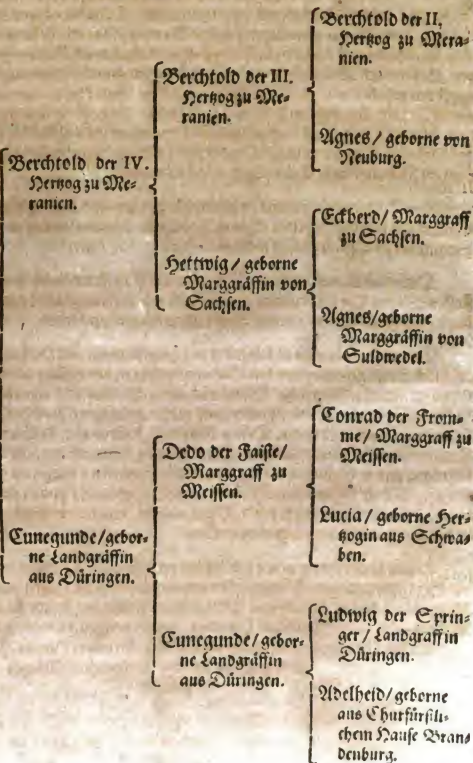 Berchtold der IV.
Hertzog zu Me-
ranien.
Cunegunde/gebor-
ne Landgräffin
aus Düringen.
Berchtold der III.
Hertzog zu Me-
ranien.
Hettwig / geborne
Marggräffin von
Sachsen.
Dedo der Faiste/
Marggraff zu
Meissen.
Cunegunde/gebor-
ne Landgräffin
aus Düringen.
Berchtold der II,
Hertzog zu Mera-
nien.
Agnes / geborne von
Neuburg.
Eckberd / Marggraff
zu Sachsen.
Agnes/geborne
Marggräffin von
Suldwedel.
Conrad der From-
me / Marggraff zu
Meissen.
Lucia / geborne Her-
tzogin aus Schwa-
ben.
Ludwig der Sprin-
ger / Landgraff in
Düringen.
Adelheid/geborne
aus Churfürstli-
chem Hause Bran-
denburg.